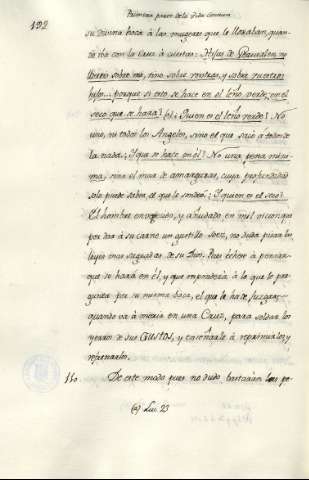 192
Primera parte de la Vida Comun
su Divina boca à las mugeres que le lloraban, quan
do iba con la Cruz à cuestas: Hijas de Jerusalen, no
lloreis sobre mi, sino sobre vosotras, y sobre vuestros
hijos... porque si esto se hace en el leño verde, en el
seco que se hará? (a) ¿Quien es el leño verde? No
uno, ni todos los Angeles, sino el que sacó a todos de
la nada. ¿Y que se hace en él? No una pena mini-
ma, sino el mar de amarguras, cuya profundidad
solo puede saber, el que le sondeó. ¿Y quien es el seco?
El hombre envejecido, y ahudado en mil
por dar à su carne un gustillo soez, no duda pisar las
leyes mas sagradas de su Dios. Pues échese à pensar
que se hará en él, y que responderia à lo que le pre-
gunta por su misma boca, el que le ha de juzgar,
quando va à morir en una Cruz, para soldar los
yerros de sus Gustos, y enseñarle à reprimirlos, y
refrenarlos.
110. De este modo pues no dudo, bastarian los pe-
(a) Luc. 23